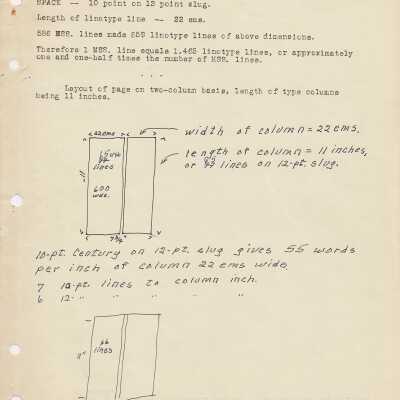 SPACE -- 10 point on 12 point slug.
Length of linotype line -- 22 ems.
586 MSS. lines made 858 linotype lines of above dimensions.
Therefore 1 MSS. line equals 1.465 linotype lines, or approximately
one and one-half times the number of MSS. lines.
. . .
Layout of page on two-column basis, length of type columns
being 11 inches.
22 ems
width of column = 22 ems.
length of column = 11 inches,
or lines on 12-pt. slug.
lines
11"
600
wds.
7 3/4"
10-pt. Century on 12-pt. slug gives 55 words
per inch of column 22 ems wide.
7 10-pt. lines to column inch.
6 12- " " " " "
11"
66
lines